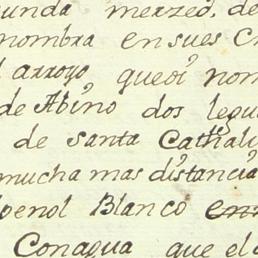 unda merzed, de
nombra en sues
arroyo, quedi nom
de Abino dos legu
de santa Cathali
mucha mas distancia
penol Blanco
Conagua que el